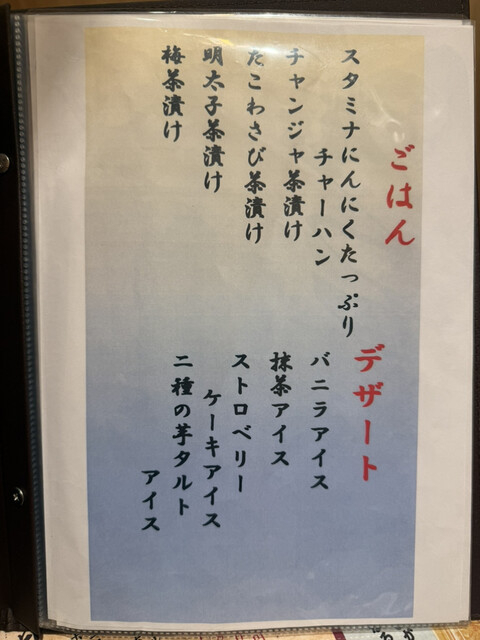 ごはん
スタミナにんにくたっぷり
チャーハン
チャンジャ茶漬け
たこわさび茶漬け
明太子茶漬け
梅茶漬け
デザート
バニラアイス
抹茶アイス
ストロベリー
ケーキアイス
二種の芋タルト
アイス